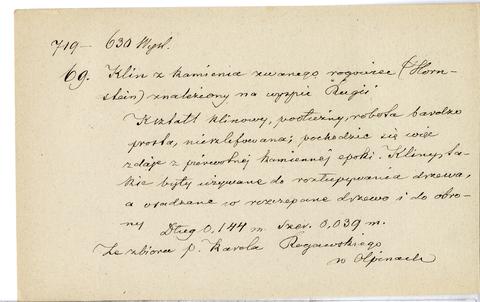 719— 630 Wykl.
69. Klin z kamienia zwanego rogowiec (Horn-
stein) znaleziony na wyspie Rugii
Kształt klinowy, podłużny, robota bardzo
prosta, nieszlifowana; pochodzić się więc
zdaje z pierwotnej kamiennej epoki. Kliny, ta-
kie były używane do rozłupywania drzewa,
a osadzane w rozczepane drzewo i do obro-
ny Dług 0,144 m. Szer. 0,039 m.
Ze zbioru p. Karola Rogawskiego
w Ołpinach